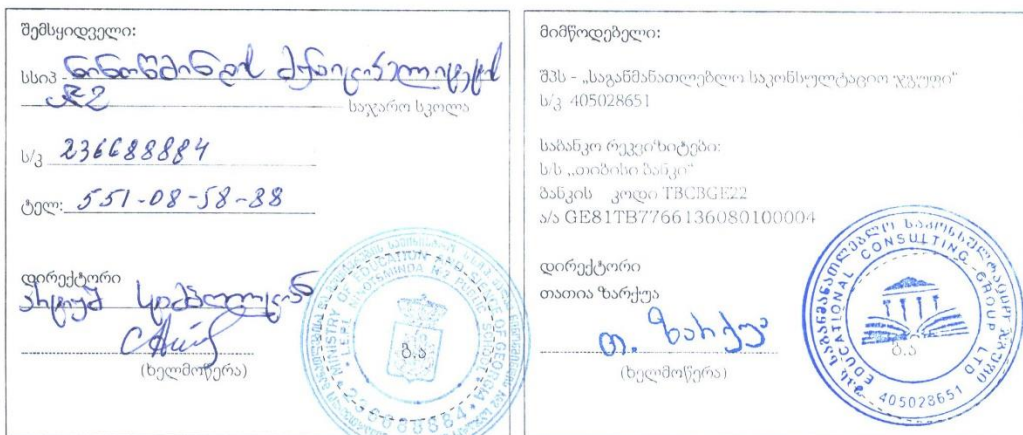 შემსყიდველი:
სსიპ - ნინოწმინდის მუნიციპალიტეტის
№2 საჯარო სკოლა
ს/კ 236688884
ტელ: 551-08-58-88
დირექტორი
(ხელმოწერა)
MINISTRY OF EDUCATION AND SCIENCE OF GEORGIA
LEPL NINOTSMINDA N2 PUBLIC SCHOOL
236688884
ბ.ა
მიმწოდებელი:
შპს - „საგანმანათლებლო საკონსულტაციო ჯგუფი“
ს/კ 405028651
საბანკო რეკვიზიტები:
ს/ს „თიბისი ბანკი“
ბანკის კოდი TBCBGE22
ა/ა GE81TB7766136080100004
დირექტორი
თათია ზარქუა
თ. ზარქუა
(ხელმოწერა)
შპს საგანმანათლებლო საკონსულტაციო ჯგუფი
EDUCATIONAL CONSULTING GROUP LTD
405028651
ბ.ა